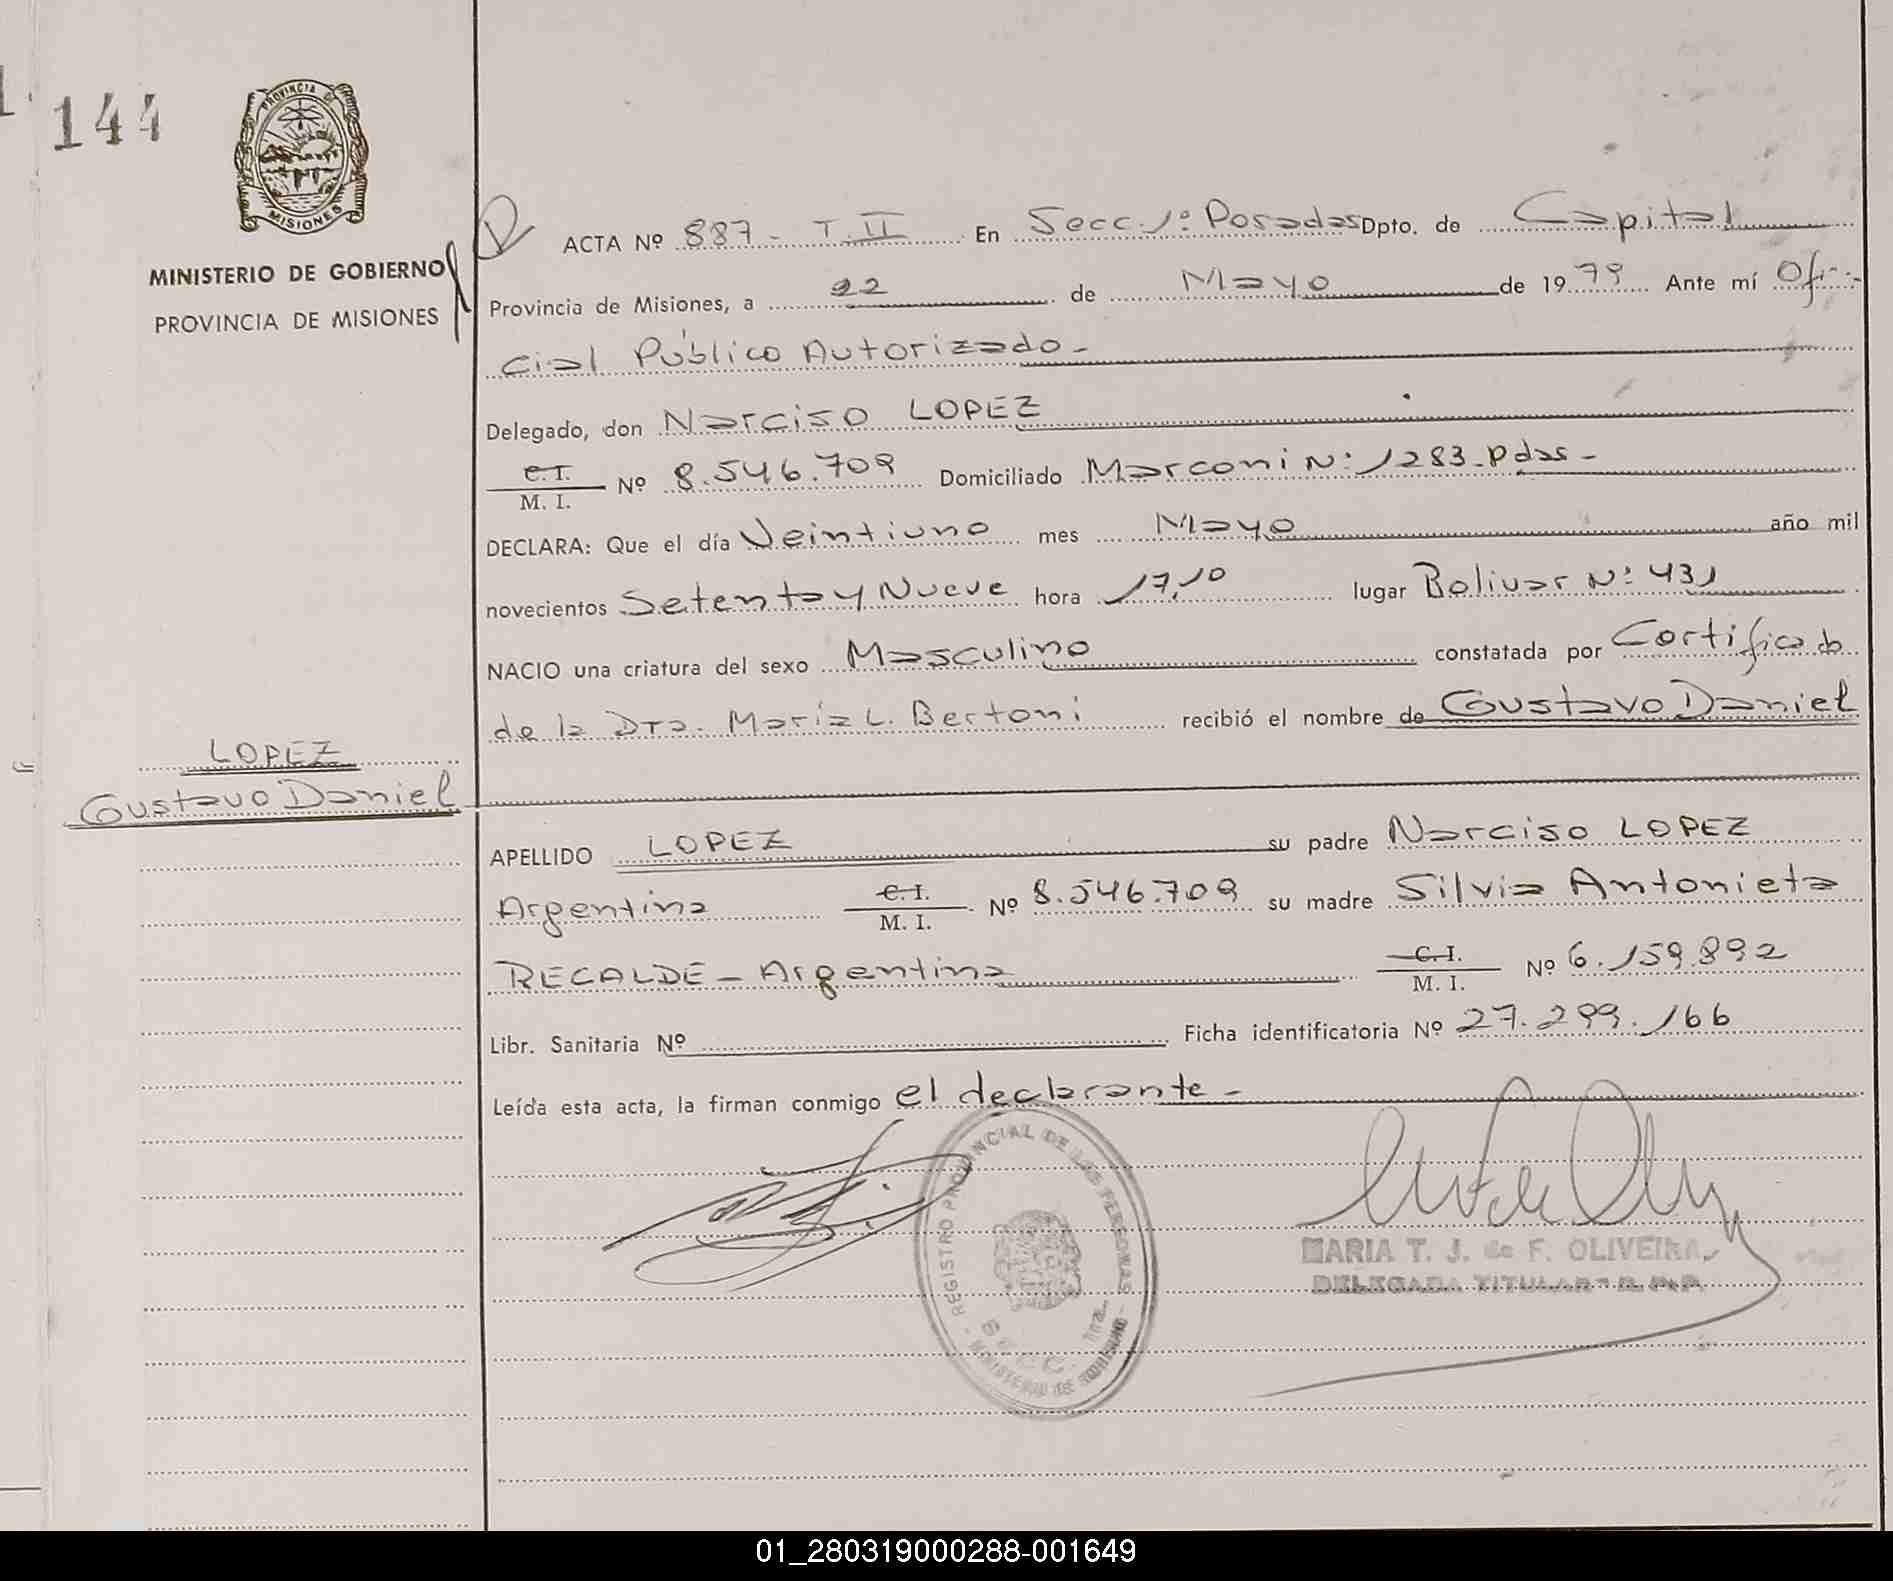 144
PROVINCIA DE
MISIONES
MINISTERIO DE GOBIERNO
PROVINCIA DE MISIONES
LOPEZ
Gustavo Daniel
ACTA Nº 887 - T. II En Secc. 1º Posadas Dpto. de Capital
Provincia de Misiones, a 22 de Mayo de 1979 Ante mí Ofi-
cial Público Autorizado -
Delegado, don Narciso LOPEZ
C. I.
M. I. Nº 8.546.709 Domiciliado Marconi Nº 1283 - Pdas -
DECLARA: Que el día Veintiuno mes Mayo año mil
novecientos Setenta y Nueve hora 17,10 lugar Bolivar Nº 431
NACIO una criatura del sexo Masculino constatada por Certificado
de la Dra. María L. Bertoni recibió el nombre de Gustavo Daniel
APELLIDO LOPEZ su padre Narciso LOPEZ
Argentina C. I. M. I. Nº 8.546.709 su madre Silvia Antonieta
RECALDE - Argentina C. I. M. I. Nº 6.159.892
Libr. Sanitaria Nº Ficha identificatoria Nº 27.299.166
Leída esta acta, la firman conmigo el declarante -
REGISTRO PROVINCIAL DE LAS PERSONAS
SECC. 1ra.
MINISTERIO DE GOBIERNO
MARIA T. J. de F. OLIVEIRA
DELEGADA TITULAR - R. P. P.
01_280319000288-001649